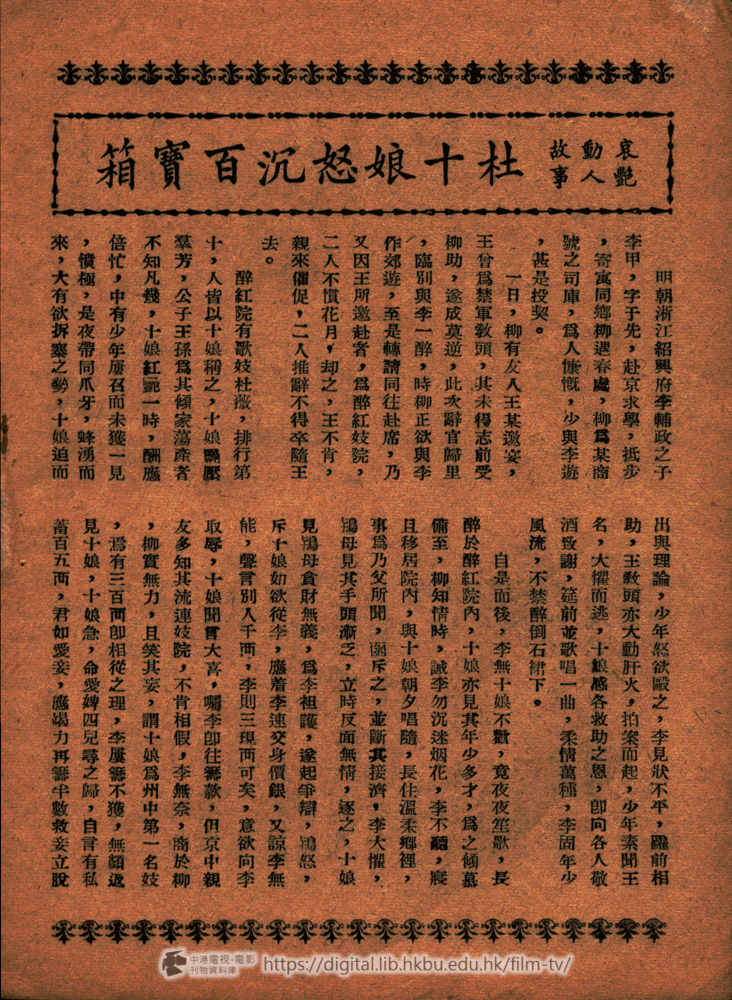 哀艷
動人
故事
杜十娘怒沉百寶箱
明朝浙江紹興府李輔政之子
李甲，字于先，赴京求學，抵步
，寄寓同鄉柳遇春處，柳爲某商
號之司庫，爲人慷慨，少與李遊
，甚是投契。
一日，柳有友人王某邀宴，
王曾爲禁軍敎頭，其未得志前受
柳助，遂成莫逆，此次辭官歸里
，臨別與李一醉，時柳正欲與李
作郊遊，至是轉請同往赴席，乃
又因王所邀赴者，爲醉紅妓院，
二人不慣花月，却之，王不肯，
親來催促，二人推辭不得卒隨王
去。
醉紅院有歌妓杜薇，排行第
十，人皆以十娘稱之，十娘艷壓
羣芳，公子王孫爲其傾家蕩產者
不知凡幾，十娘紅艷一時，酬應
倍忙，中有少年屢召而未獲一見
，憤極，是夜帶同爪牙，蜂湧而
來，大有欲拆寨之勢，十娘迫而
出與理論，少年怒欲毆之，李見狀不平，躍前相
助，王敎頭亦大動肝火，拍案而起，少年素聞王
名，大懼而逃，十娘感各救助之恩，卽向各人敬
酒致謝，筵前並歌唱一曲，柔情萬種，李固年少
風流，不禁醉倒石裙下。
自是而後，李無十娘不歡，竟夜夜笙歌，長
醉於醉紅院內，十娘亦見其年少多才，爲之傾慕
備至，柳知情時，誡李勿沉迷烟花，李不聽，寢
且移居院內，與十娘朝夕唱隨，長住溫柔鄉裡，
事爲乃父所聞，函斥之，並斷其接濟，李大懼，
鴇母見其手頭漸乏，立時反面無情，逐之，十娘
見鴇母貪財無義，爲李袒護，遂起爭辯，鴇怒，
斥十娘如欲從李，應着李速交身價銀，又諒李無
能，聲言別人千両，李則三現両可矣，意欲向李
取辱，十娘聞言大喜，囑李卽往籌款，但京中親
友多知其流連妓院，不肯相假，李無奈，商於柳
，柳實無力，且笑其妄，謂十娘爲州中第一名妓
，焉有三百両卽相從之理，李屢籌不獲，無顏返
見十娘，十娘急，命愛婢四兒尋之歸，自言有私
蓄百五両，君如愛妾，應竭力再籌半數救妾立脫
中港電視·電影
刊物資料庫
https://digital.lib.hkbu.edu.hk/film-tv/